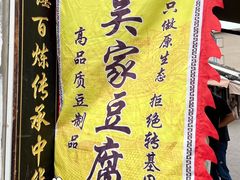 只做原生态
拒绝转基因
吴家豆腐
高品质豆制品
百炼传承中华